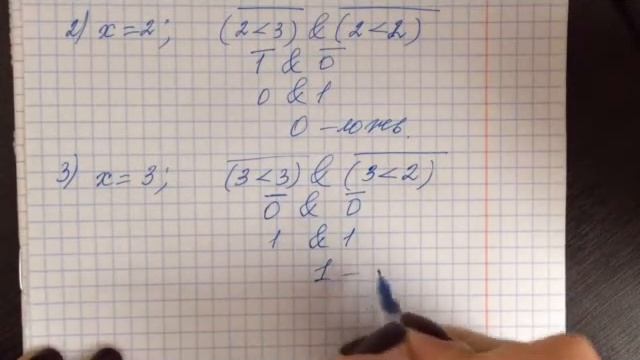 2) x=2; (2<3) & (2<2)
1 & 0
0 & 1
0 – ложь.
3) x=3; (3<3) & (3<2)
0 & 0
1 & 1
1 –